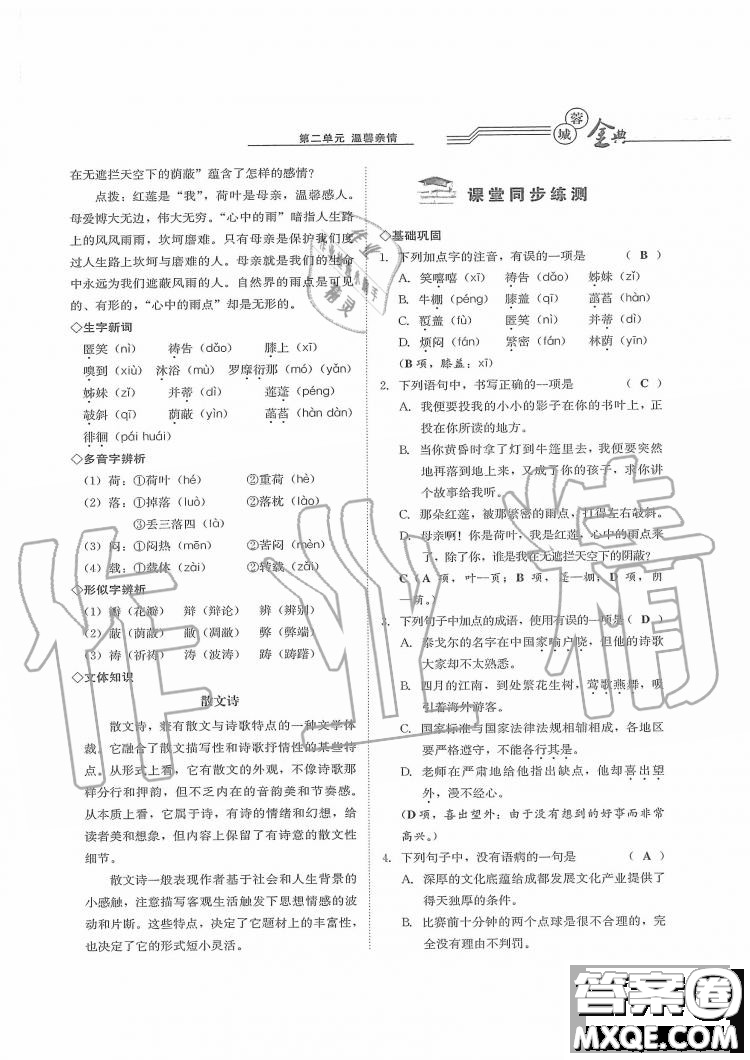 第二单元 温馨亲情
蓉城金典
在无遮拦天空下的荫蔽”蕴含了怎样的感情?
点拨：红莲是“我”，荷叶是母亲，温馨感人。
母爱博大无边，伟大无穷。“心中的雨”暗指人生路
上的风风雨雨，坎坷磨难。只有母亲是保护我们度
过人生路上坎坎坷坷的唯一。母亲就是我们的生命
中永远为我们遮蔽风雨的人。自然界的雨点是可见
的、有形的，“心中的雨点”却是无形的。
◇生字新词
匿笑（nì） 祷告（dǎo） 膝上（xī）
嗅到（xiù） 沐浴（mù yù） 罗摩衍那（mó）（yǎn）
姊妹（zǐ） 并蒂（dì） 莲蓬（péng）
攲斜（qī） 荫蔽（yìn） 菡萏（hàn dàn）
徘徊（pái huái）
◇多音字辨析
（1）荷：①荷叶（hé） ②重荷（hè）
（2）落：①掉落（luò） ②落枕（lào）
③丢三落四（là）
（3）闷：①闷热（mēn） ②苦闷（mèn）
（4）载：①载体（zài） ②转载（zǎi）
◇形似字辨析
（1）瓣（花瓣） 辩（辩论） 辨（辨别）
（2）蔽（荫蔽） 敝（凋敝） 弊（弊端）
（3）祷（祈祷） 涛（波涛） 踌（踌躇）
◇文体知识
散文诗
散文诗，兼有散文与诗歌特点的一种文学体
裁。它融合了散文描写性和诗歌抒情性的某些特
点。从形式上看，它有散文的外观，不像诗歌那
样分行和押韵，但不乏内在的音韵美和节奏感。
从本质上看，它属于诗，有诗的情绪和幻想，给
读者美和想象，但内容上保留了有诗意的散文性
细节。
散文诗一般表现作者基于社会和人生背景的
小感触，注意描写客观生活触发下思想情感的波
动和片断。这些特点，决定了它题材上的丰富性，
也决定了它的形式短小灵活。
课堂同步练测
◇基础巩固
1. 下列加点字的注音，有误的一项是 （ B ）
A. 笑嘻嘻（xī） 祷告（dǎo） 姊妹（zǐ）
B. 牛棚（péng） 膝盖（qī） 菡萏（hàn）
C. 覆盖（fù） 匿笑（nì） 并蒂（dì）
D. 烦闷（fán） 繁密（fán） 林荫（yīn）
（B项，膝盖：xī）
2. 下列语句中，书写正确的一项是 （ C ）
A. 我便要投我的小小的影子在你的书叶上，正
投在你所读的地方。
B. 当你黄昏时拿了灯到牛篷里去，我便要突然
地再落到地上来，又成了你的孩子，求你讲故
事给我听。
C. 那朵红莲，被那繁密的雨点，打得左右攲斜。
D. 母亲啊！你是荷叶，我是红莲，心中的雨点来
了，除了你，谁是我在无遮拦天空下的阴蔽?
C（A项，叶—页；B项，篷—棚；D项，阴
—荫。）
3. 下列句子中加点的成语，使用有误的一项（ D ）
A. 泰戈尔的名字在中国家喻户晓，但他的诗歌
大家却不太熟悉。
B. 四月的江南，到处繁花生树，莺歌燕舞，吸
引着海外游客。
C. 国家标准与国家法律法规相辅相成，各地区
要严格遵守，不能各行其是。
D. 老师在严肃地给他指出缺点，他却喜出望
外，漫不经心。
（D项，喜出望外：由于没有想到的好事而非常
高兴。）
4. 下列句子中，没有语病的一句是 （ A ）
A. 深厚的文化底蕴给成都发展文化产业提供了
得天独厚的条件。
B. 比赛前十分钟的两个点球是很不合理的，完
全没有理由不判罚。
作业精
答案卷
MXQE.COM